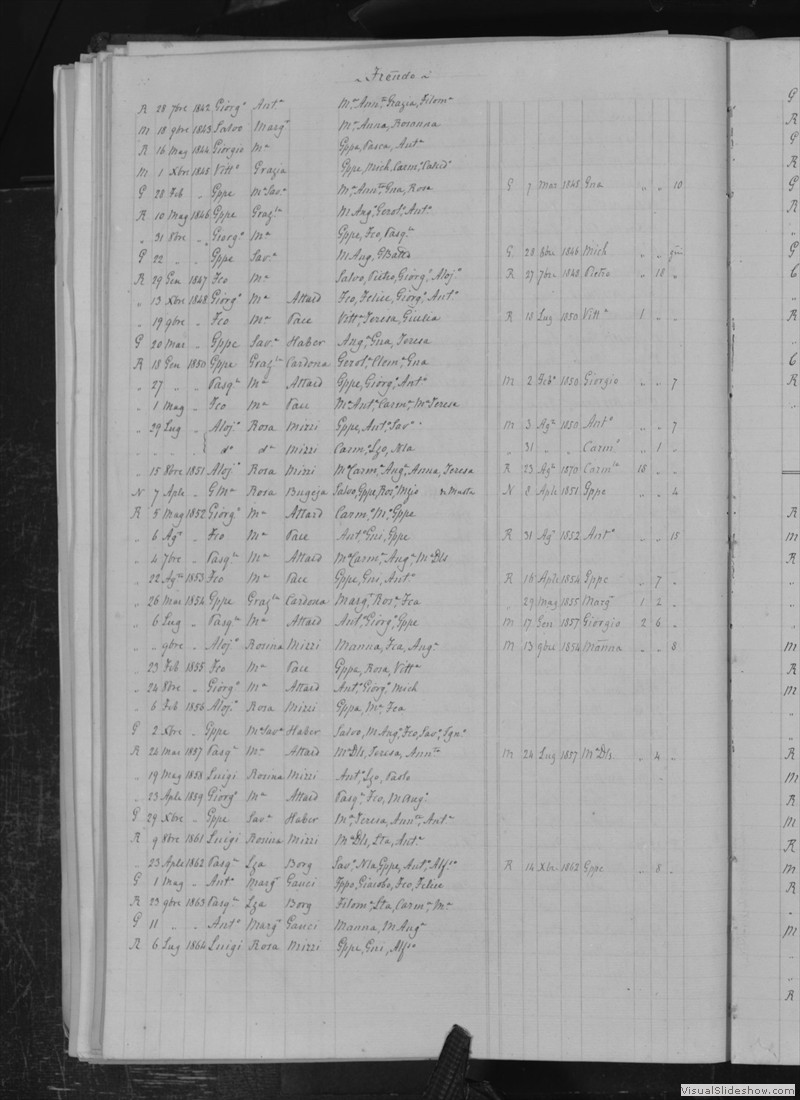 „ Frendo „
R 28 7bre 1842 Giorgº Antª Mª, Annª, Grazia, Filomª
M 18 9bre 1843 Salvo Margª Mª, Anna, Rosanna
R 16 Mag 1844 Giorgio Mª Gppa, Pasca, Antª
M 1 Xbre 1845 Vittº Grazia Gppe, Mich, Carmº
G 28 Feb „ Gppe Mª Savª Mª, Annª, Gna, Rosa G 7 Mar 1845 Gna „ „ 10
R 10 Mag 1846 Gppe Grazlª M Angª, Gerolª, Antª
„ 31 8bre „ Giorgº Mª Gppe, Fco, Pasqlº
G 22 „ „ Gppe Savª M Aug, GBatta G 28 8bre 1846 Mich „ „
R 29 Gen 1847 Fco Mª Salvo, Pietro, Giorgº, Alojº R 27 7bre 1848 Pietro „ 18 „
„ 13 Xbre 1848 Giorgº Mª Attard Fco, Felice, Giorgº, Antº
„ 19 9bre „ Fco Mª Pace Vittª, Teresa, Giulia R 18 Lug 1850 Vittª 1 „ „
G 20 Mar „ Gppe Savª Haber Angª, Gna, Teresa
R 18 Gen 1850 Gppe Grazlª Cardona Gerolª, Clemª, Gna
„ 27 „ „ Pasqº Mª Attard Gppe, Giorgº, Antº M 2 Febº 1850 Giorgio „ „ 7
„ 1 Mag „ Fco Mª Pace Mª Antª, Carmª, Mª Teresa
„ 29 Lug „ Alojº Rosa Mizzi Gppe, Antº, Savº M 3 Agº 1850 Antº „ „ 7
„ „ „ „ dº dª Mizzi Carmº, Lzo, Nla „ 31 „ „ Carmº „ 1 „
„ 15 8bre 1851 Alojº Rosa Mizzi Mª Carmª, Angª, Anna, Teresa R 23 Agº 1870 Carmlª 18 „ „
N 7 Aple „ G Mª Rosa Bugeja Salvo, Gppe, Rosº, Mejo N 8 Aple 1851 Gppe „ „ 4
R 5 Mag 1852 Giorgº Mª Attard Carmº, Mº, Gppe
„ 6 Agº „ Fco Mª Pace Antº, Gni, Gppe R 31 Agº 1852 Antº „ „ 15
„ 4 7bre „ Pasqlº Mª Attard Mª Carmª, Angª, Mª Dls
„ 22 Agº 1853 Fco Mª Pace Gppe, Gni, Antº R 18 Aple 1854 Gppe „ 7 „
„ 26 Mar 1854 Gppe Grazlª Cardona Margª, Rosª, Fca „ 29 Mag 1855 Margª 1 2 „
„ 6 Lug „ Pasqº Mª Attard Antº, Giorgº, Gppe M 17 Gen 1857 Giorgio 2 6 „
„ „ 9bre „ Alojº Rosina Mizzi Manna, Fca, Angª M 13 9bre 1854 Manna „ „ 8
„ 23 Feb 1855 Fco Mª Pace Gppa, Rosa, Vittª
„ 24 8bre „ Giorgº Mª Attard Antº, Giorgº, Mich
„ 6 Feb 1856 Alojº Rosa Mizzi Gppa, Mª, Fca
G 2 Xbre „ Gppe Mª Savª Haber Salvo, M Angº, Fco, Savº, Ignº
R 24 Mar 1857 Pasqº Mª Attard Mª Dls, Teresa, Annª M 24 Lug 1857 Mª Dls. „ 4 „
„ 19 Mag 1858 Luigi Rosina Mizzi Antº, Lzo, Paolo
„ 23 Aple 1859 Giorgº Mª Attard Pasqº, Fco, M Angº
G 29 Xbre „ Gppe Savª Haber Mª, Teresa, Annª, Antª
R 9 8bre 1861 Luigi Rosina Mizzi Mª Dls, Lta, Antª
„ 23 Aple 1862 Pasqlº Lza Borg Savº, Nla, Gppe, Antº, Alfso R 14 Xbre 1862 Gppe „ 8 „
G 1 Mag „ Antº Margª Gauci Ippo, Giacobo, Fco, Felice
R 23 9bre 1863 Pasqº Lza Borg Filomª, Lta, Carmª, Mª
G 11 „ „ Antº Margª Gauci Manna, M Angª
R 6 Lug 1864 Luigi Rosa Mizzi Gppe, Gni, Alfso
VisualSlideshow.com